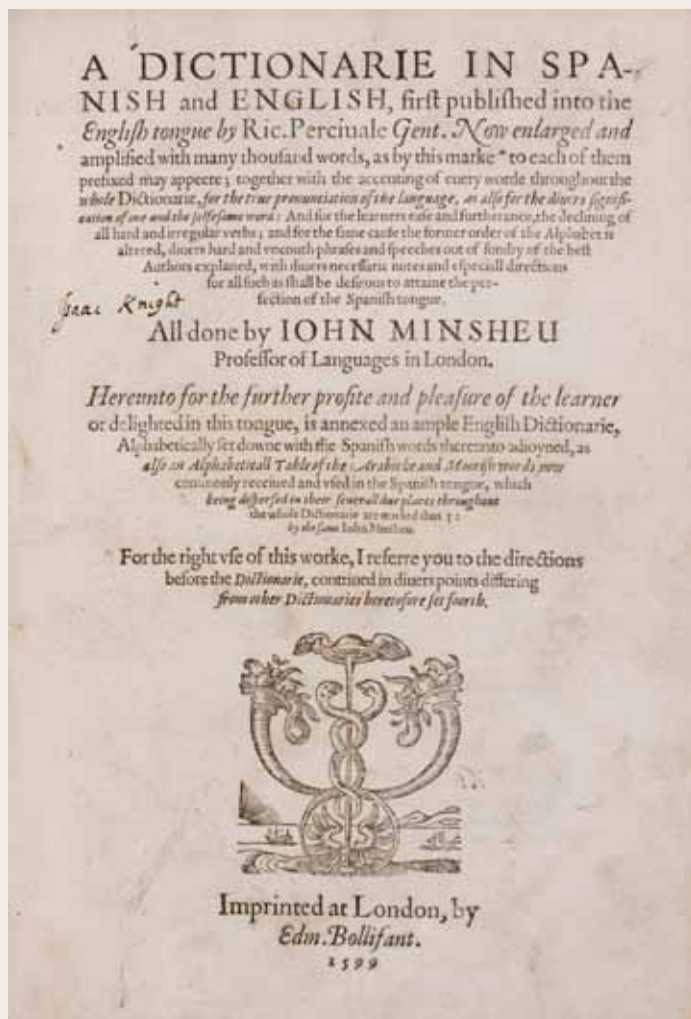 A DICTIONARIE IN SPA-
NISH and ENGLISH, first published into the
English tongue by Ric. Perciuale Gent. Now enlarged and
amplified with many thousand words, as by this marke * to each of them
prefixed may appeere; together with the accenting of euery worde throughout the
whole Dictionarie, for the true pronunciation of the language, as also for the diuers signifi-
cation of one and the selfesame word: And for the learners ease and furtherance, the declining of
all hard and irregular verbs; and for the same cause the former order of the Alphabet is
altered, diuers hard and vncouth phrases and speeches out of sundry of the best
Authors explaned, with diuers necessarie notes and especiall directions
for all such as shall be desirous to attaine the per-
fection of the Spanish tongue.
Isaac Knight
All done by IOHN MINSHEU
Professor of Languages in London.
Hereunto for the further profite and pleasure of the learner
or delighted in this tongue, is annexed an ample English Dictionarie,
Alphabetically set downe with the Spanish words thereunto adioyned, as
also an Alphabeticall Table of the Arabicke and Moorish words now
commonly receiued and vsed in the Spanish tongue, which
being dispersed in their seuerall due places throughout
the whole Dictionarie are marked thus †:
by the same Iohn Minsheu.
For the right vse of this worke, I referre you to the directions
before the Dictionarie, contriued in diuers points differing
from other Dictionaries heretofore set foorth.
Imprinted at London, by
Edm. Bollifant.
1599